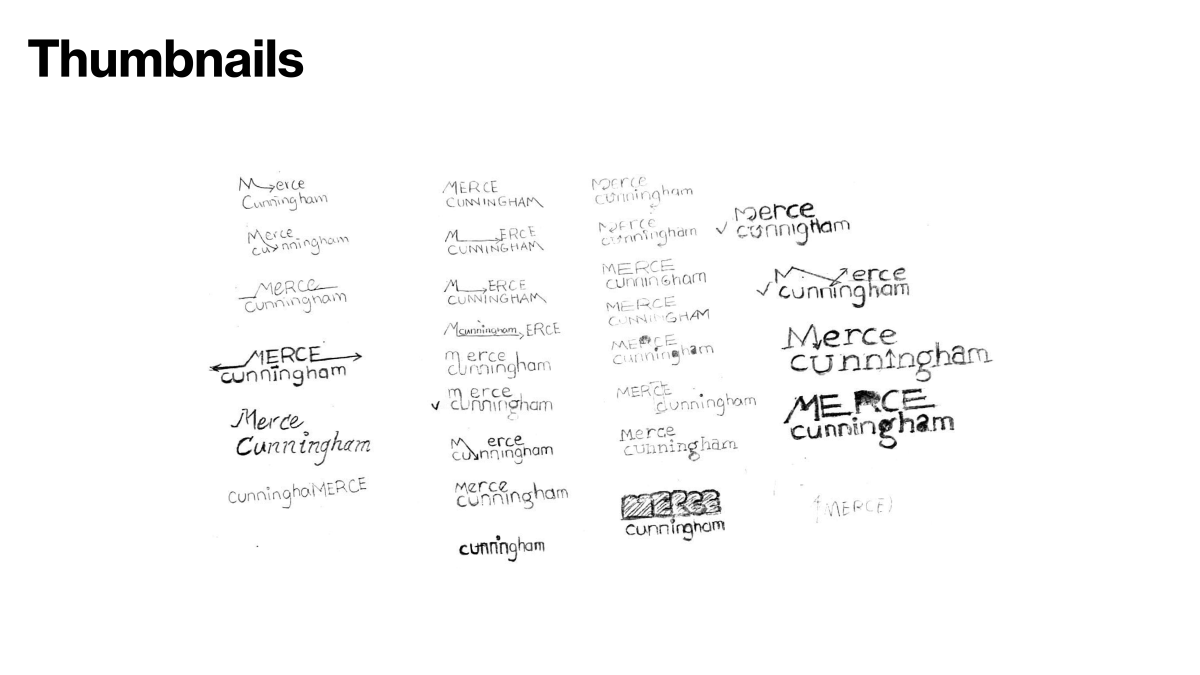 Thumbnails
Merce
Cunningham
Merce
cunningham
MERCE
cunningham
MERCE
cunningham
Merce
Cunningham
cunninghaMERCE
MERCE
CUNNINGHAM
M ERCE
CUNNINGHAM
M ERCE
CUNNINGHAM
Mcunningham ERCE
merce
cunningham
merce
cunningham
M erce
cunningham
Merce
cunningham
cunningham
Merce
cunningham
Merce
cunningham
MERCE
cunningham
MERCE
CUNNINGHAM
MERCE
cunningham
MERCE
cunningham
Merce
cunningham
MERCE
cunningham
Merce
cunnigham
Merce
cunningham
Merce
cunningham
MERCE
cunningham
(MERCE)